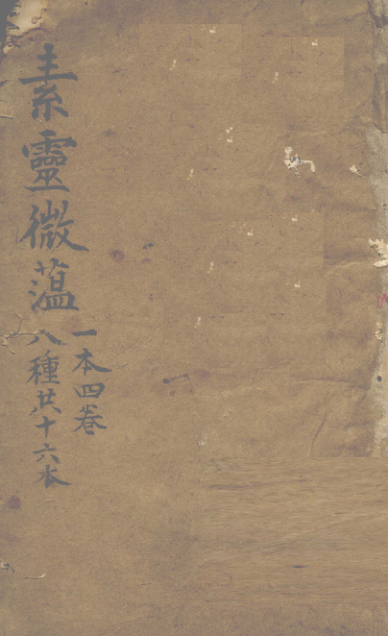 素靈微薀
一本四卷
八種共十六本